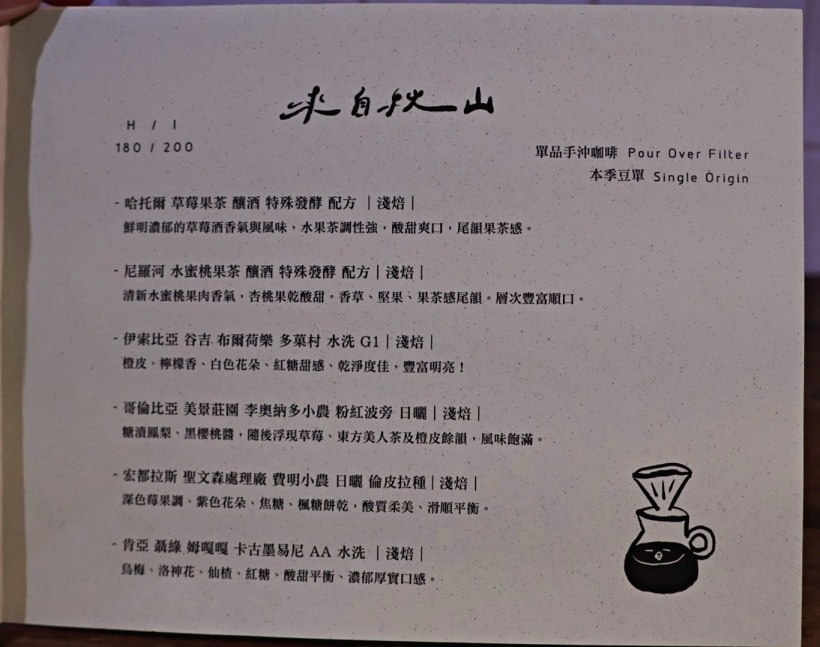 來自秋山
H / I
180 / 200
單品手沖咖啡 Pour Over Filter
本季豆單 Single Origin
- 哈托爾 草莓果茶 釀酒 特殊發酵 配方 ｜淺焙｜
鮮明濃郁的草莓酒香氣與風味，水果茶調性強，酸甜爽口，尾韻果茶感。
- 尼羅河 水蜜桃果茶 釀酒 特殊發酵 配方｜淺焙｜
清新水蜜桃果肉香氣，杏桃果乾酸甜。香草、堅果、果茶感尾韻。層次豐富順口。
- 伊索比亞 谷吉 布爾荷樂 多菓村 水洗 G1｜淺焙｜
橙皮、檸檬香、白色花朵、紅糖甜感、乾淨度佳，豐富明亮！
- 哥倫比亞 美景莊園 李奧納多小農 粉紅波旁 日曬｜淺焙｜
糖漬鳳梨、黑櫻桃醬，隨後浮現草莓、東方美人茶及橙皮餘韻，風味飽滿。
- 宏都拉斯 聖文森處理廠 費明小農 日曬 倫皮拉種｜淺焙｜
深色莓果調、紫色花朵、焦糖、楓糖餅乾，酸質柔美、滑順平衡。
- 肯亞 聶綠 姆嘎嘎 卡古墨易尼 AA 水洗 ｜淺焙｜
烏梅、洛神花、仙楂、紅糖、酸甜平衡、濃郁厚實口感。